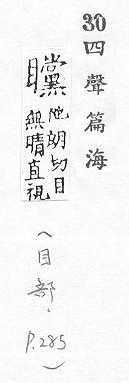 30四聲篇海
矘他朗切目
無睛直視
(目部, P.285)